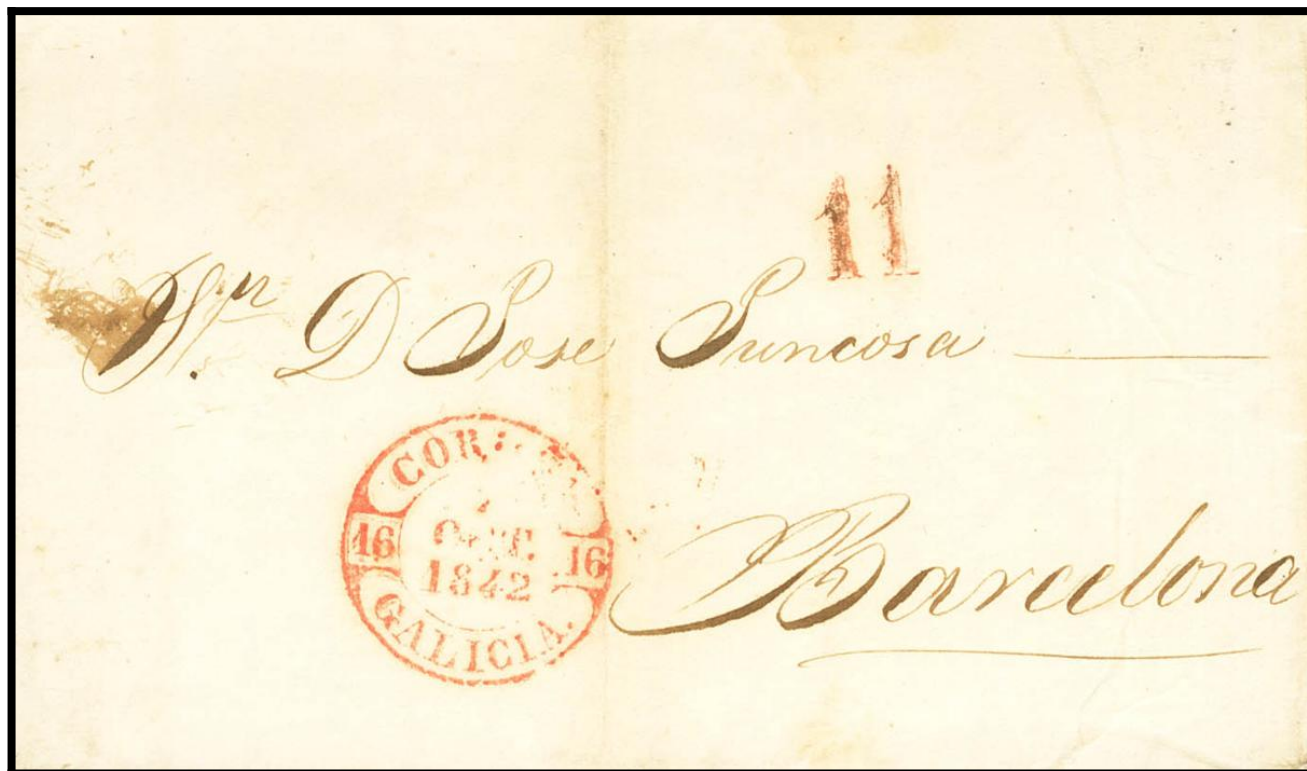 11
Sr. D Jose Juncosa
16
OCT.
1842
16
GALICIA.
Barcelona